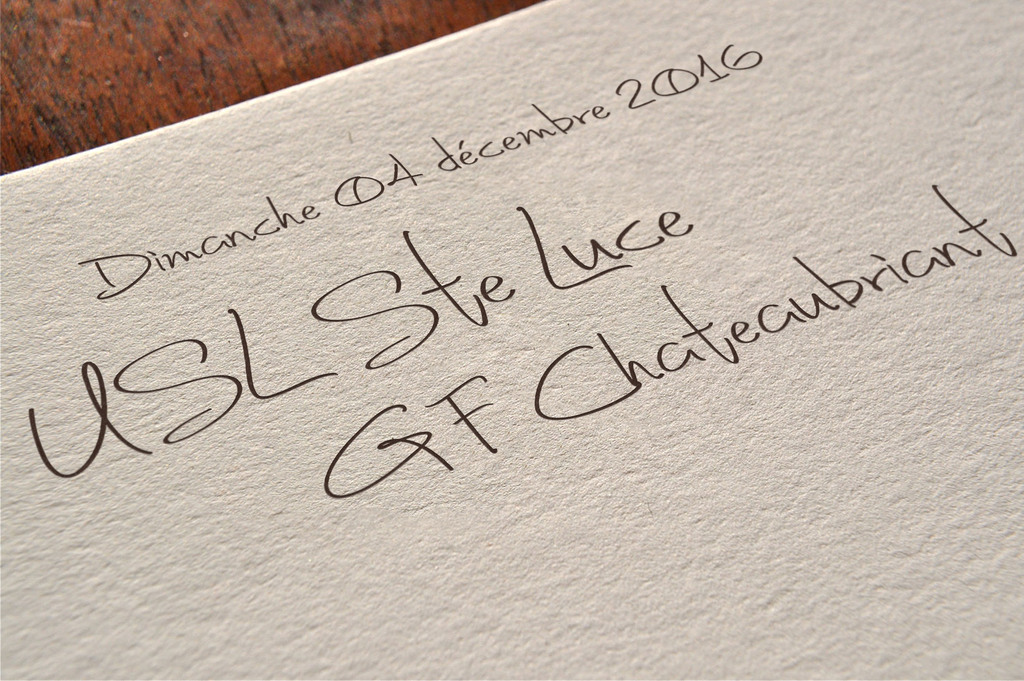 Dimanche 04 décembre 2016
USL Ste Luce
GF Chateaubriant